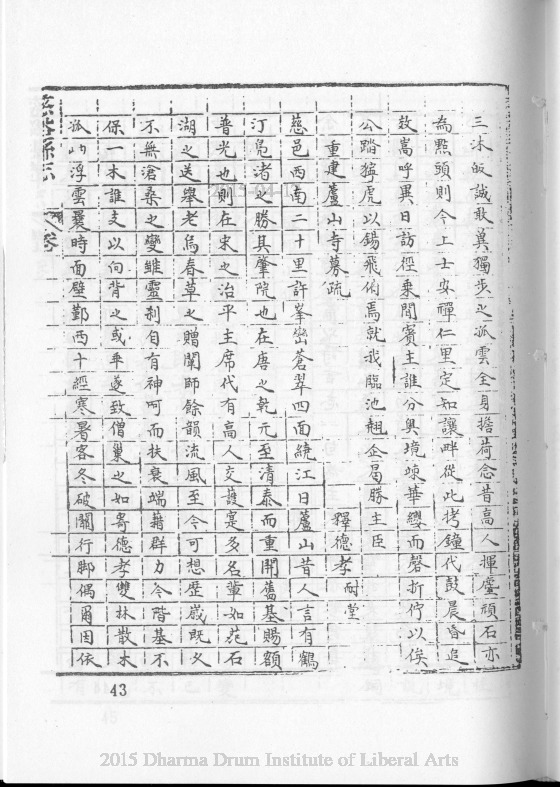 三沐皈誠敢冀獨步之孤雲全身擔荷念昔高人揮麈頑石亦
為點頭則今上士安禪仁里定知讓畔從此拷鐘代鼓晨昏追
敎嵩呼異日訪徑乘間賓主誰分與境竦華纓而磬折佇以俟
公踏獰虎以錫飛俯焉就我臨池翹企曷勝主臣
重建蘆山寺募疏 釋德孝 耐堂
慈邑西南二十里許峯巒蒼翠四面繞江曰蘆山昔人言有鶴
汀鳧渚之勝其肇院也在唐之乾元至清泰而重開舊基賜額
普光也則在宋之治平主席代有高人交護寔多名輩如苑石
湖之送舉老烏春草之贈闡師餘韻流風至今可想歷歲既久
不無滄桑之變雖靈刹自有神呵而扶衰端藉群力今階基不
保一木誰支以向背之或乖遂致僧巢之如寄德孝雙林散木
孤山浮雲曩時面壁鄞西十經寒暑客冬破關行脚偶爾因依
慈谿縣志
卷
43
2015 Dharma Drum Institute of Liberal Arts